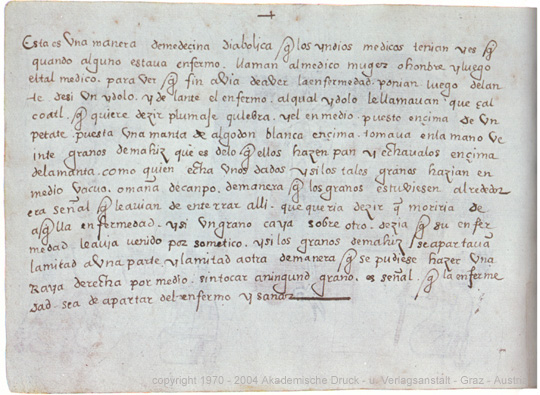 Esta es una manera demedeçina diabolica q̃ los yndios medicos tenian y es q̃
quando alguno estava enfermo. llaman almedico muger ohombre y luego
eltal medico. para ver q̃ fin avia deaver laenfermedad. ponian luego delan
te. desi un ydolo. y de lante el enfermo. alqual ydolo le llamavan. que çal
coatl. q̃ quiere dezir plumaje culebra. y el en medio. puesto ençima de un
petate. puesta una manta de algodon blanca ençima. tomava enla mano ve
inte granos demahiz que es delo q̃ ellos hazen pan y echavalos ençima
delamanta. como quien echa unos dados y si los tales granos hazian en
medio vacuo. omana decanpo. demanera q̃ los granos estuviesen alrrededor
era señal q̃ leavian de enterrar alli. que queria dezir q̃ moriria de
aq̃lla enfermedad. y si un grano caya sobre otro. dezia q̃ su enfer
medad. leavia venido por sometico. y si los granos demahiz se apartavā
lamitad a una parte. y lamitad aotra demanera q̃ se pudiese hazer una
Raya derecha por medio. sintocar aningund grano. es señal. q̃ la enferme
dad. sea de apartar del enfermo y sanar
copyright 1970 - 2004 Akademische Druck - u. Verlagsanstalt - Graz - Austria